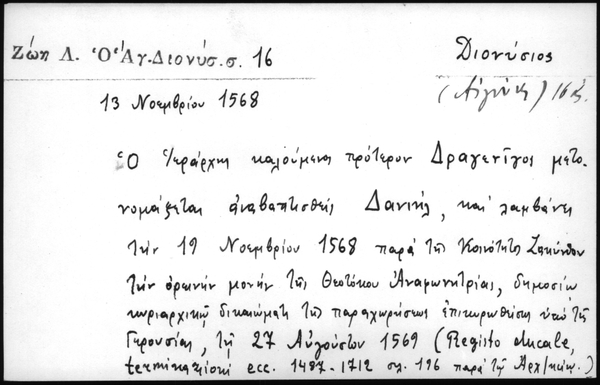 Ζώη Λ. Ὁ Ἁγ. Διονύσ. σ. 16
Διονύσιος
(Αἰγίνης) 16
13 Νοεμβρίου 1568
Ὁ Ἱεράρχης καλούμενος πρότερον Δραγενῖγος μετο-
νομάζεται ἀναβαπτισθείς Δανιήλ, καί λαμβάνει
τήν 19 Νοεμβρίου 1568 παρά τῆς Κοινότητος Ζακύνθου
τήν ὀρεινήν μονήν τῆς Θεοτόκου Ἀναφωνητρίας, δημοσίᾳ
κυριαρχικῇ δικαιώματι τῆς παραχωρήσεως ἐπικυρωθείσης ὑπό τῆς
Γερουσίας, τῇ 27 Αὐγούστου 1569 (Registo ducale,
terminazioni ecc. 1487-1712 σλ. 196 παρά τῷ Ἀρχ/κῳ.)